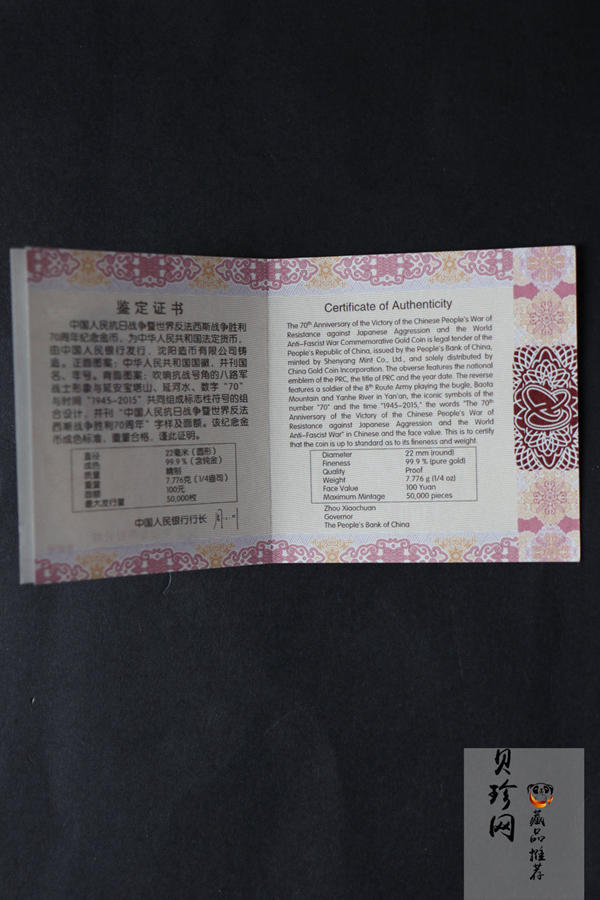 鉴定证书
中国人民抗日战争暨世界反法西斯战争胜利
70周年纪念金币，为中华人民共和国法定货币，
由中国人民银行发行，沈阳造币有限公司铸
造。正面图案：中华人民共和国国徽，并刊国
名、年号。背面图案：吹响抗战号角的八路军
战士形象与延安宝塔山、延河水、数字“70”
与时间“1945-2015”共同组成标志性符号的组
合设计，并刊“中国人民抗日战争暨世界反法
西斯战争胜利70周年”字样及面额。该纪念金
币成色标准，重量合格，谨此证明。
直径 22毫米（圆形）
成色 99.9％（含纯金）
质量 精制
重量 7.776克（1/4盎司）
面额 100元
最大发行量 50,000枚
中国人民银行行长
Certificate of Authenticity
The 70th Anniversary of the Victory of the Chinese People's War of
Resistance against Japanese Aggression and the World
Anti-Fascist War Commemorative Gold Coin is legal tender of the
People's Republic of China, issued by the People's Bank of China,
minted by Shenyang Mint Co., Ltd., and solely distributed by
China Gold Coin Incorporation. The obverse features the national
emblem of the PRC, the title of PRC and the year date. The reverse
features a soldier of the 8th Route Army playing the bugle, Baota
Mountain and Yanhe River in Yan'an, the iconic symbols of the
number "70" and the time "1945-2015," the words "The 70th
Anniversary of the Victory of the Chinese People's War of
Resistance against Japanese Aggression and the World
Anti-Fascist War" in Chinese and the face value. This is to certify
that the coin is up to standard as to its fineness and weight.
Diameter 22 mm (round)
Fineness 99.9 % (pure gold)
Quality Proof
Weight 7.776 g (1/4 oz)
Face Value 100 Yuan
Maximum Mintage 50,000 pieces
Zhou Xiaochuan
Governor
The People's Bank of China
贝珍网
藏品推荐